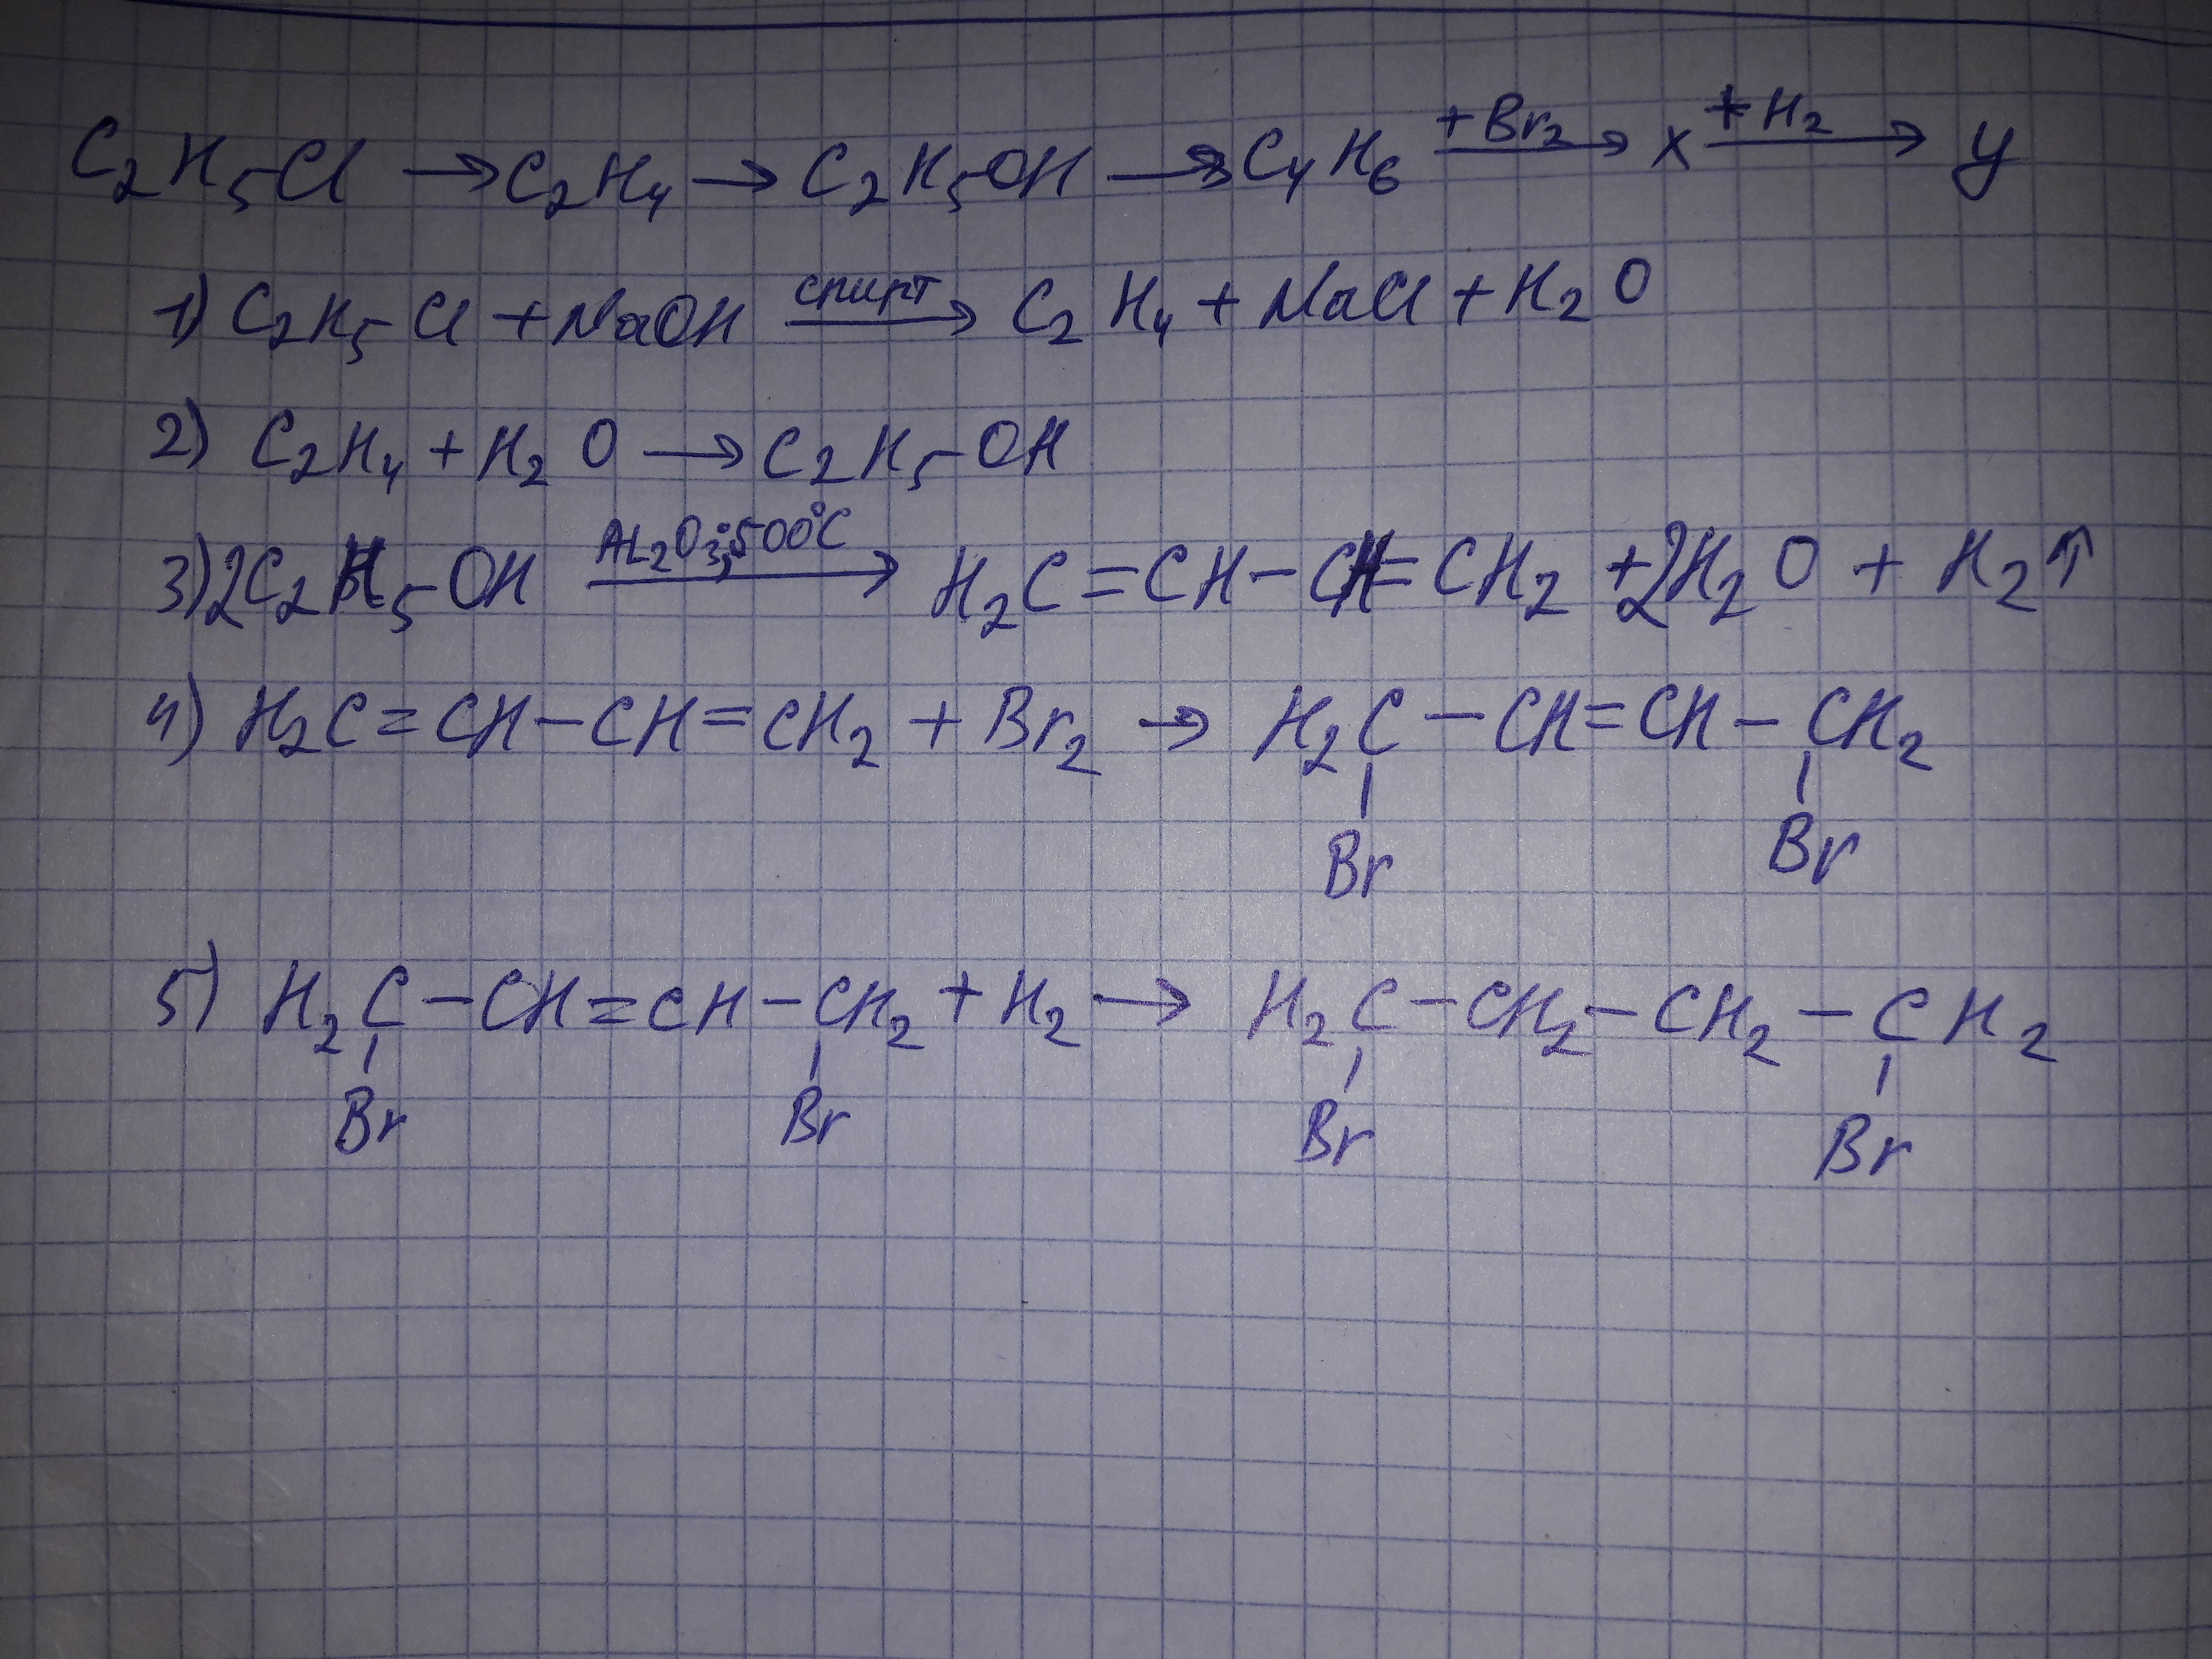 C₂H₅Cl → C₂H₄ → C₂H₅OH → C₄H₆ +Br₂→ x +H₂→ y
1) C₂H₅Cl + NaOH спирт→ C₂H₄ + NaCl + H₂O
2) C₂H₄ + H₂O → C₂H₅-OH
3) 2C₂H₅OH AL₂O₃; 500°C→ H₂C=CH-CH=CH₂ + 2H₂O + H₂↑
4) H₂C=CH-CH=CH₂ + Br₂ → H₂C-CH=CH-CH₂
Br Br
5) H₂C-CH=CH-CH₂ + H₂ → H₂C-CH₂-CH₂-CH₂
Br Br Br Br